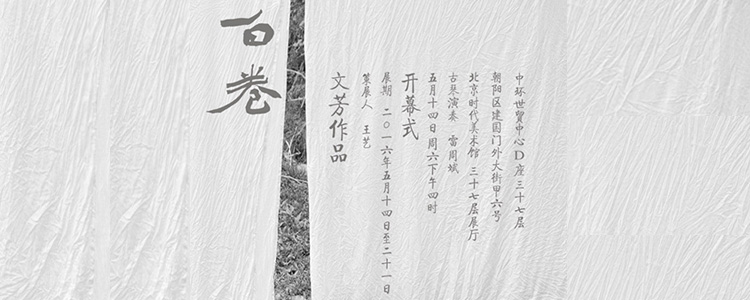 百卷
文芳作品
策展人 王艺
展期 二〇一六年五月十四日至二十一日
开幕式
五月十四日周六下午四时
古琴演奏 雷周斌
北京时代美术馆 三十七层展厅
朝阳区建国门外大街甲六号
中环世贸中心D座三十七层